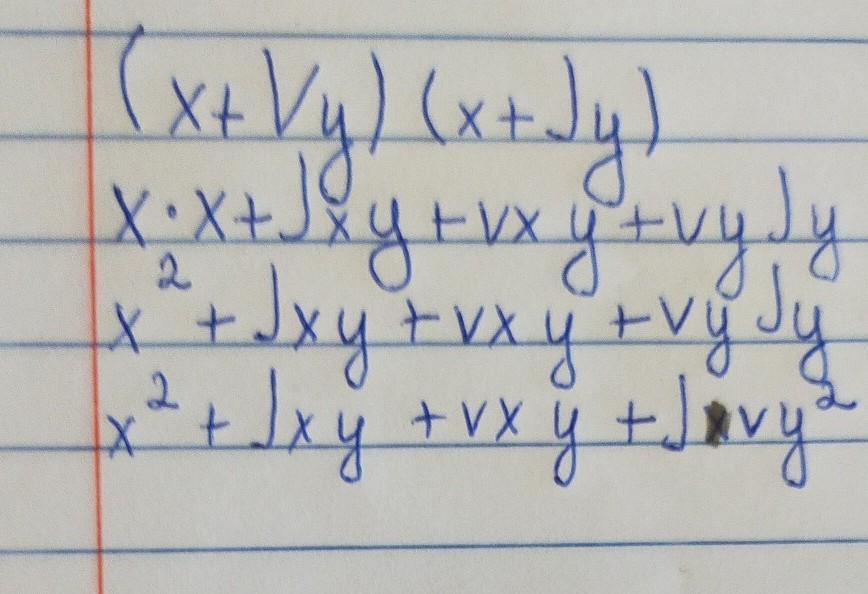 (x+Vy)(x+Jy)
x·x+Jxy+vxy+vyJy
x²+Jxy+vxy+vyJy
x²+Jxy+vxy+Jvy²